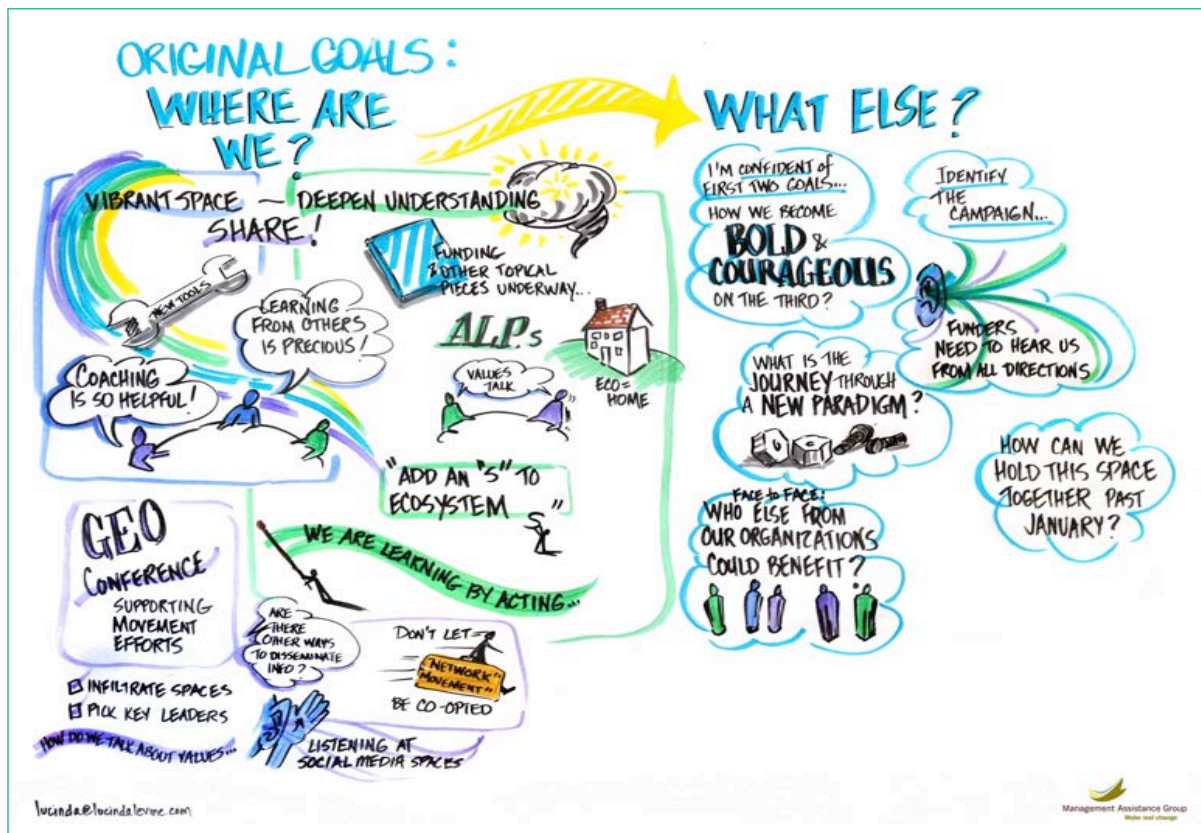 ORIGINAL GOALS:
WHERE ARE
WE?
VIBRANT SPACE ~ DEEPEN UNDERSTANDING
SHARE!
NEW TOOLS
LEARNING
FROM OTHERS
IS PRECIOUS!
COACHING
IS SO HELPFUL!
FUNDING
& OTHER TOPICAL
PIECES UNDERWAY...
ALPs
VALUES
TALK
ECO =
HOME
"ADD AN "S" TO
ECOSYSTEM"
S
WE ARE LEARNING BY ACTING...
GEO
CONFERENCE
SUPPORTING
MOVEMENT
EFFORTS
INFILTRATE SPACES
PICK KEY LEADERS
HOW DO WE TALK ABOUT VALUES...
ARE
THERE
OTHER WAYS
TO DISSEMINATE
INFO?
DON'T LET
"NETWORK
MOVEMENT"
BE CO-OPTED
LISTENING AT
SOCIAL MEDIA SPACES
WHAT ELSE?
I'M CONFIDENT of
FIRST TWO GOALS...
HOW WE BECOME
BOLD &
COURAGEOUS
ON THE THIRD?
IDENTIFY
THE
CAMPAIGN...
FUNDERS
NEED TO HEAR US
FROM ALL DIRECTIONS
WHAT IS THE
JOURNEY THROUGH
A NEW PARADIGM?
HOW CAN WE
HOLD THIS SPACE
TOGETHER PAST
JANUARY?
FACE to FACE:
WHO ELSE FROM
OUR ORGANIZATIONS
COULD BENEFIT?
lucinda@lucindalevine.com
Management Assistance Group
Make real change